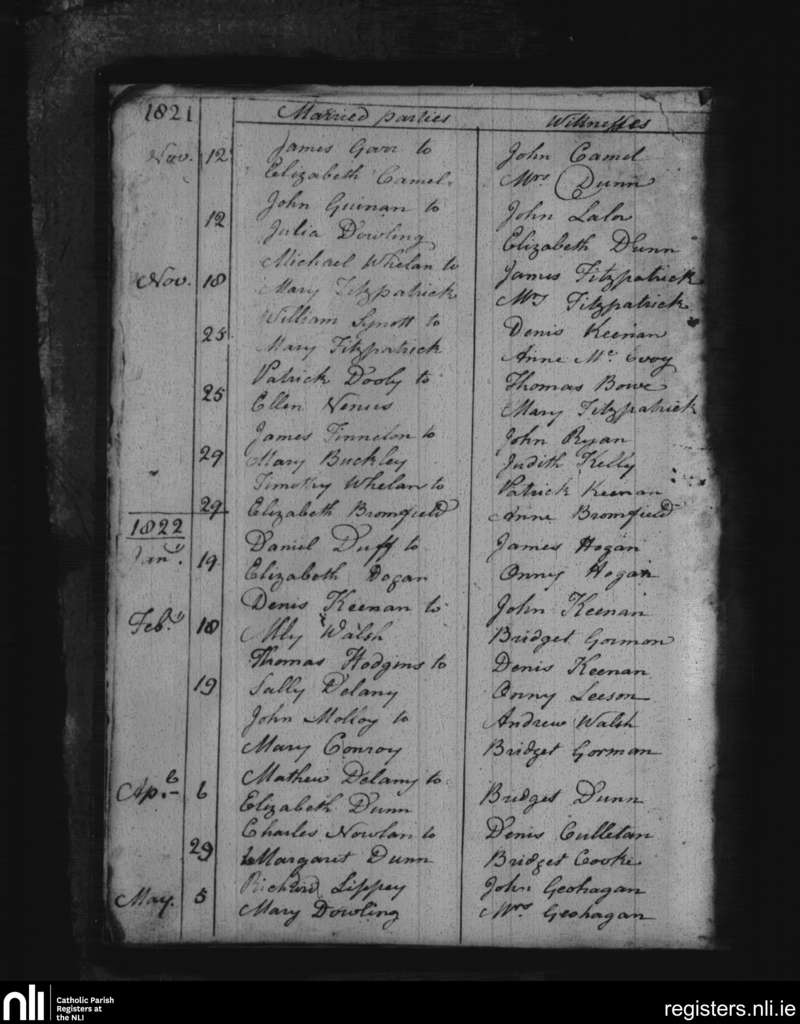 1821 Married parties Wittnesses
Nov. 12 James Gorr to John Camel
Elizabeth Camel Mrs Dunn
12 John Guinan to John Lalor
Julia Dowling Elizabeth Dunn
Nov. 18 Michael Whelan to James Fitzpatrick
Mary Fitzpatrick Mrs Fitzpatrick
25 William Synott to Denis Keenan
Mary Fitzpatrick Anne Mc Evoy
25 Patrick Dooly to Thomas Bowe
Ellen Mary Fitzpatrick
29 James to John Ryan
Mary Buckley Judith Kelly
29 Timothy Whelan to Patrick Keenan
Elizabeth Bromfield Anne Bromfield
1822
Jany. 19 Daniel Duff to James Hogan
Elizabeth Dogan Onny Hogan
Feby. 18 Denis Keenan to John Keenan
Ally Walsh Bridget Gormon
19 Thomas Hodgins to Denis Keenan
Sally Delany Onny Leeson
John Molloy to Andrew Walsh
Mary Conroy Bridget Gorman
Ap. 6 Mathew Delany to
Elizabeth Dunn Bridget Dunn
29 Charles Nowlan to Denis Culletan
Margaret Dunn Bridget Cooke
May. 5 Richard Lippey John Geohagan
Mary Dowling Mrs Geohagan
nli Catholic Parish
Registers at
the NLI
registers.nli.ie